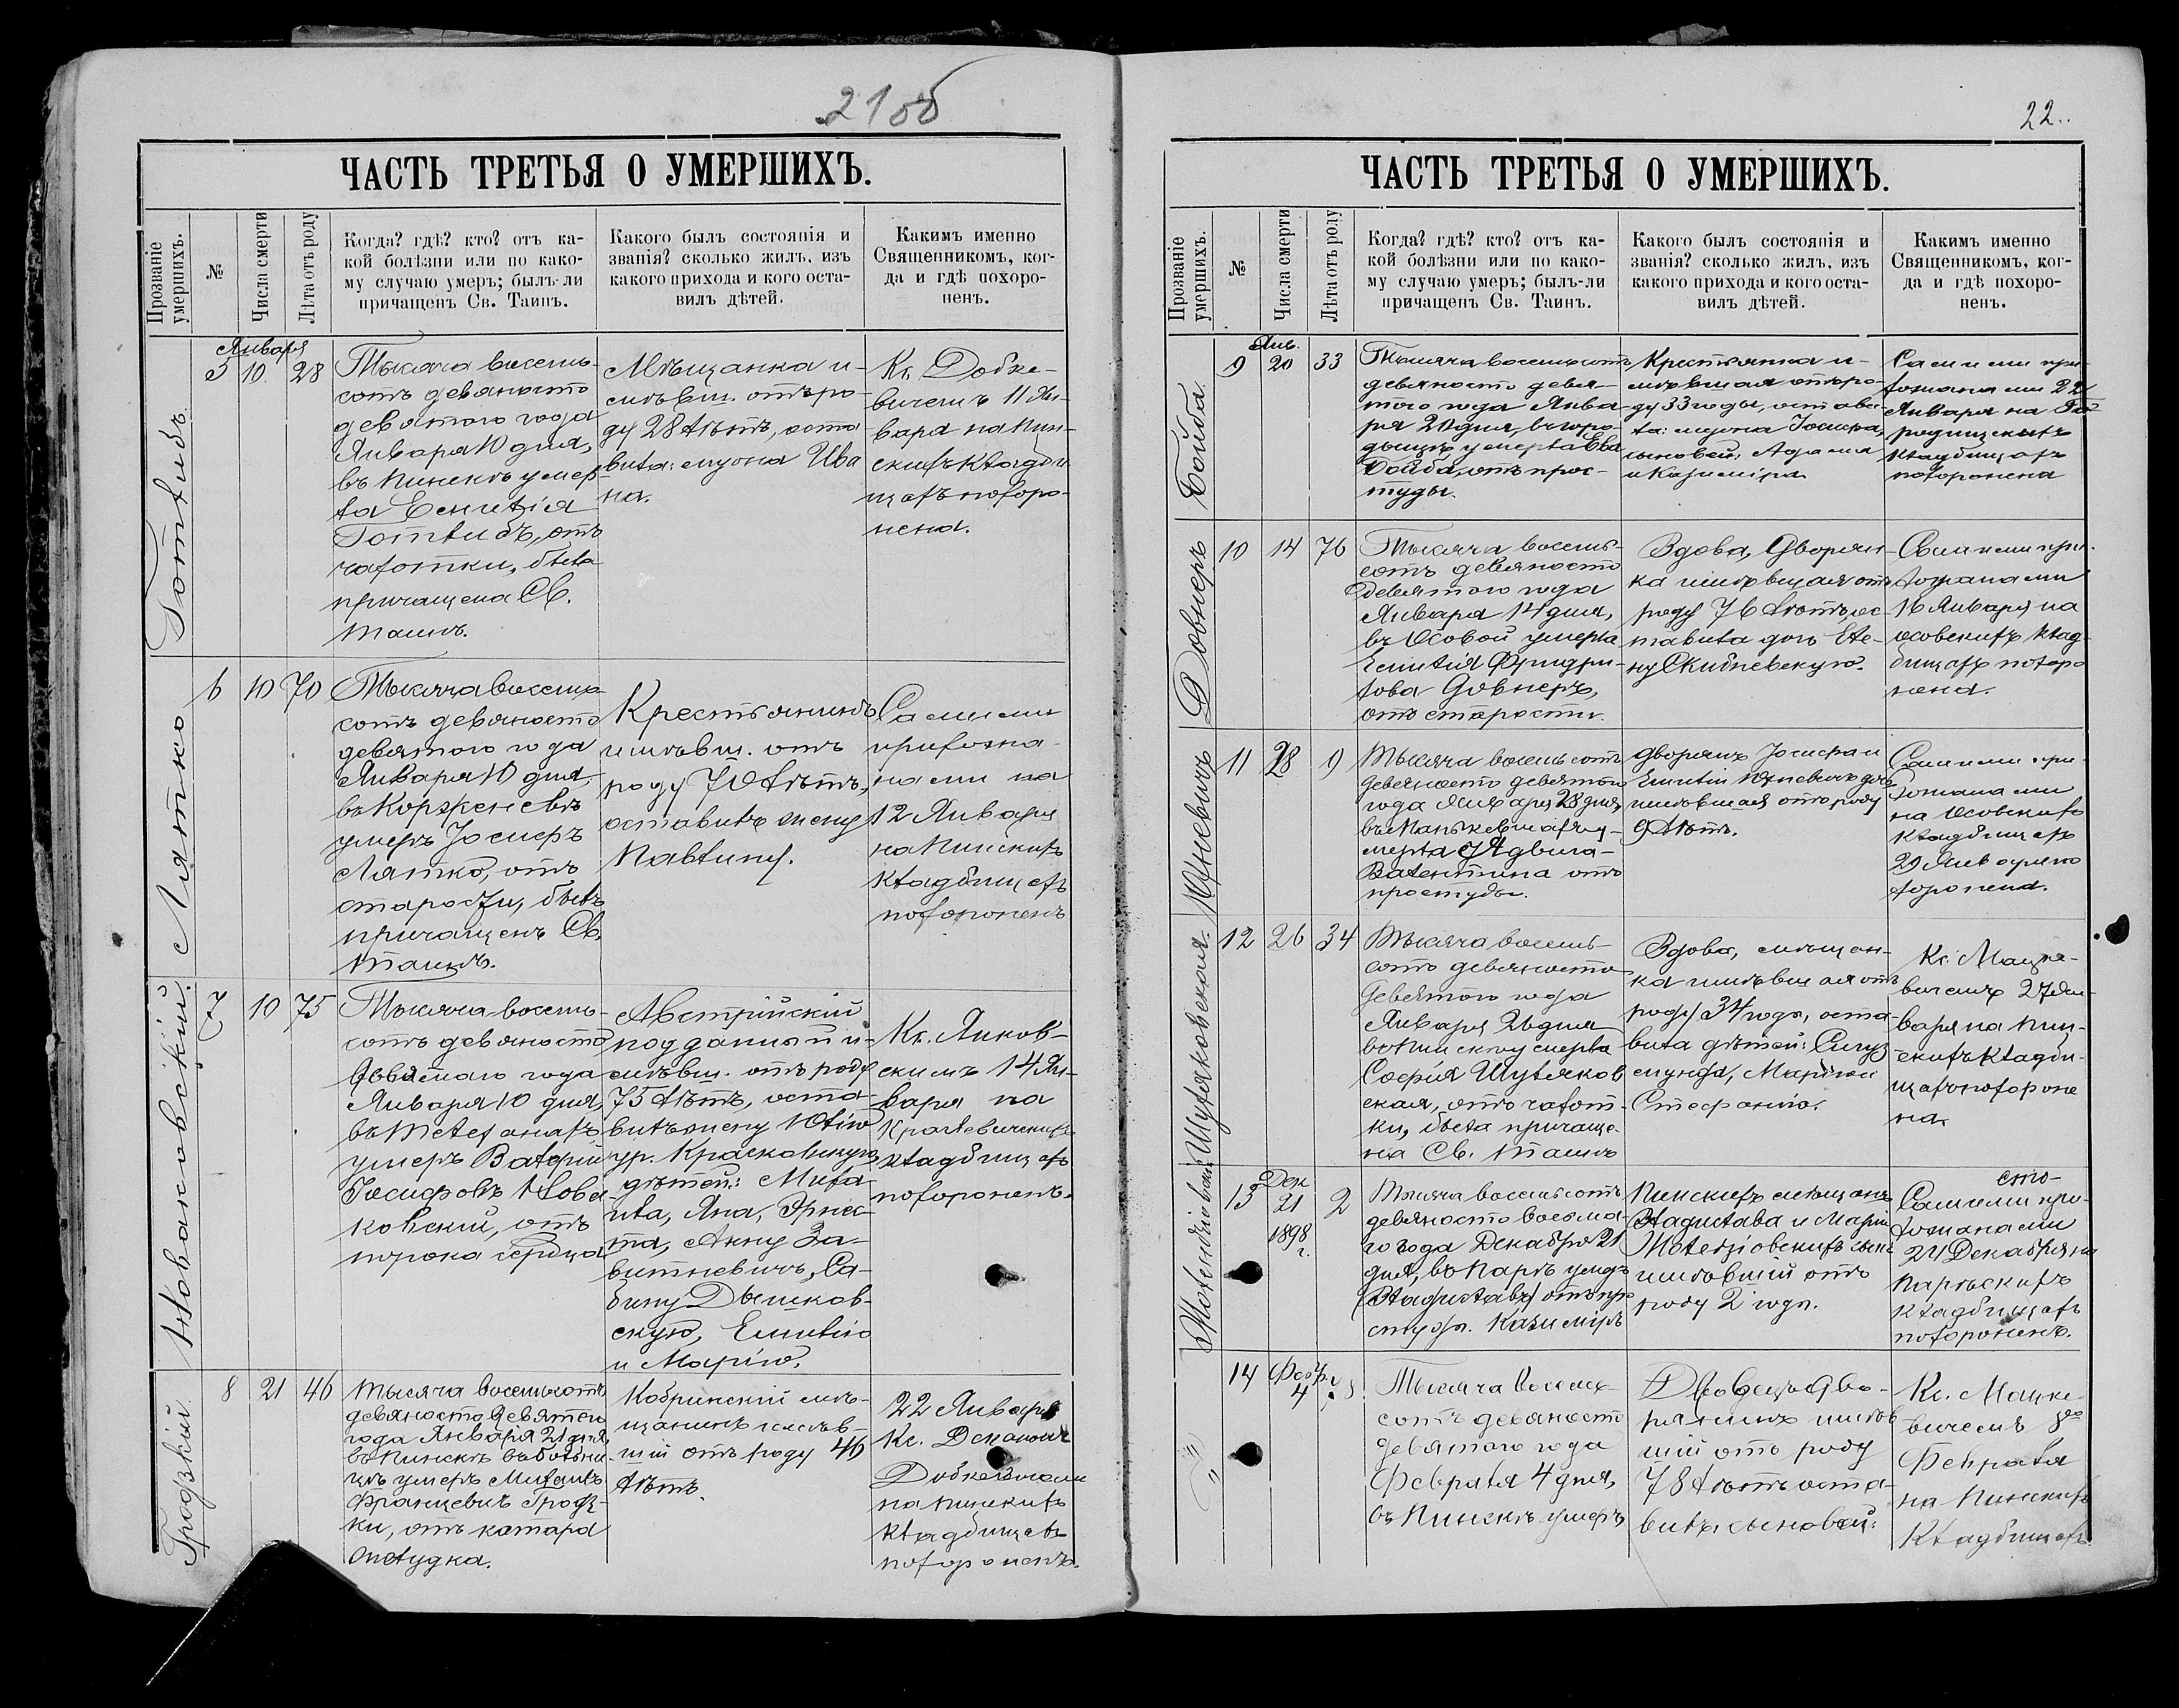 21об
ЧАСТЬ ТРЕТЬЯ О УМЕРШИХЪ.
Прозваніе умершихъ.
№
Числа смерти
Лѣта отъ роду
Когда? гдѣ? кто? отъ ка-
кой болѣзни или по како-
му случаю умеръ; былъ-ли
причащенъ Св. Таинъ.
Какого былъ состоянія и
званія? сколько жилъ, изъ
какого прихода и кого оста-
вилъ дѣтей.
Какимъ именно
Священникомъ, ког-
да и гдѣ похоро-
ненъ.
Готлибъ
Января
5 10. 28
Тысяча восемь-
сотъ девяносто
девятого года
Января 10 дня,
въ Пинскѣ умер-
ла Емилія
Готлибъ, отъ
чахотки, была
причащена Св.
Таинъ.
Мѣщанка и-
мѣвш. отъ ро-
ду 28 лѣтъ, оста
вила: мужа Ива
на.
Кс. Добке-
вичемъ 11 Ян-
варя на Пин-
скихъ кладби
щахъ похоро-
нена.
Лятко
6 10 70
Тысяча восемь-
сотъ девяносто
девятого года
Января 10 дня,
въ Корженевѣ
умеръ Іосифъ
Лятко, отъ
старости, былъ
причащенъ Св.
Таинъ.
Крестьянинъ
имѣвш. отъ
роду 70 лѣтъ,
оставилъ жену
Павлину.
Самими
прихожа-
нами на
12 Января
на Пинскихъ
кладбищахъ
похороненъ
Новаковскій.
7 10 75
Тысяча восемь-
сотъ девяносто
девятого года
Января 10 дня,
въ Телеханахъ
умеръ Валерій
Іосифовъ Нова
ковскій, отъ
порока сердца
Австрійскій
подданный и-
мѣвш. отъ роду
75 лѣтъ, оста-
вилъ жену Юлію
ур. Красковскую
дѣтей: Миха-
ила, Яна, Эрнес-
та, Анну За-
витневичъ, Са-
бину Дышков-
скую, Емилію
и Марію.
Кс. Янков-
скимъ 14 Ян-
варя на
Кралевичскихъ
кладбищахъ
похороненъ.
Гродзкій
8 21 46
Тысяча восемьсотъ
девяносто девятого
года Января 21 дня,
въ Пинскѣ въ больни-
цѣ умеръ Михаилъ
Францевичъ Гродз-
ки, отъ катара
желудка.
Кобринскій мѣ-
щанинъ имѣв-
шій отъ роду 46
лѣтъ.
22 Января
Кс. Деканомъ
Добкевичемъ
на Пинскихъ
кладбищахъ
похороненъ.
22.
ЧАСТЬ ТРЕТЬЯ О УМЕРШИХЪ.
Прозваніе умершихъ.
№
Числа смерти
Лѣта отъ роду
Когда? гдѣ? кто? отъ ка-
кой болѣзни или по како-
му случаю умеръ; былъ-ли
причащенъ Св. Таинъ.
Какого былъ состоянія и
званія? сколько жилъ, изъ
какого прихода и кого оста-
вилъ дѣтей.
Какимъ именно
Священникомъ, ког-
да и гдѣ похоро-
ненъ.
Бойба.
Янв.
9 20 33
Тысяча восемьсотъ
девяносто девя-
того года Янва
ря 20 дня, въ Горо-
дищѣ умерла Ева
Бойба, отъ прос-
туды.
Крестьянка и-
мѣвшая отъ ро-
ду 33 годы, остави-
ла: мужа Іосифа,
сыновей: Адама
и Казиміра
Самими при-
хожанами 22
Января на Го-
родищскихъ
кладбищахъ
похоронена
Довнеръ
10 14 76
Тысяча восемь-
сотъ девяносто
девятого года
Января 14 дня,
въ Осовой умерла
Емилія Фридри-
хова Довнеръ,
отъ старости.
Вдова, Дворян-
ка имѣвшая отъ
роду 76 лѣтъ, ос-
тавила дочь Еле-
ну Скибневскую.
Самими при-
хожанами
16 Января на
Осовскихъ клад-
бищахъ похоро
нена.
Юхневичъ
11 28 9
Тысяча восемьсотъ
девяносто девятого
года Января 28 дня,
въ Паньковичахъ у-
мерла Ядвига-
Валентина отъ
простуды.
Дворянъ Іосифа и
Емиліи Юхневичъ дочь
имѣвшая отъ роду
9 лѣтъ.
Самими при-
хожанами
на Осовскихъ
кладбищахъ
29 Января по
хоронена.
Шуляковская.
12 26 34
Тысяча восемь-
сотъ девяносто
девятого года
Января 26 дня
въ Пинскѣ умерла
Софія Шуляков
ская, отъ чахот-
ки, была причаще-
на Св. Таинъ
Вдова, мѣщан-
ка имѣвшая отъ
роду 34 годы, оста-
вила дѣтей: Сигиз
мунда, Марію и
Стефанію.
Кс. Мацке-
вичемъ 27 Ян-
варя на Пин-
скихъ кладби-
щахъ похороне
на.
13 Дек 21 1898 г. 2
Тысяча восемьсотъ
девяносто восьма-
го года Декабря 21
дня, въ Парѣ умеръ
Владиславъ отъ про
студы. Казиміръ
Пинскихъ мѣщанъ
Владислава и Маріи
сынъ
имѣвшій отъ
роду 2 годы.
Самими при-
хожанами
24 Декабря на
Парѣскихъ
кладбищахъ
похороненъ.
— " —
14 Февр. 4 78
Тысяча восемь-
сотъ девяносто
девятого года
Февраля 4 дня,
въ Пинскѣ умеръ
Вдовецъ Дво-
рянинъ имѣв
шій отъ роду
78 лѣтъ оста-
вилъ: сыновей:
Кс. Мацке-
вичемъ 8го
Февраля
на Пинскихъ
кладбищахъ